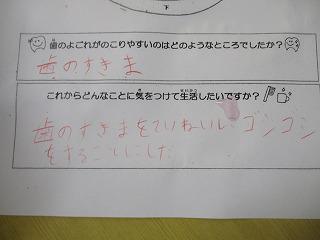 下
歯のよごれがのこりやすいのはどのようなところでしたか?
歯のすきま
これからどんなことに気をつけて生活したいですか?
歯のすきまをていねいに ゴシゴシ
をすることにした